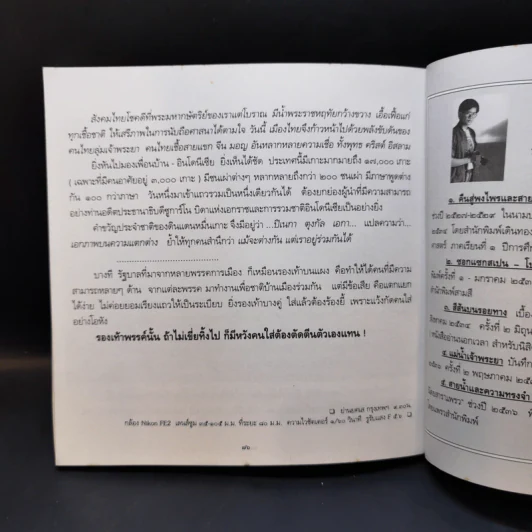 สังคมไทยโชคดีที่พระมหากษัตริย์ของเราแต่โบราณ มีน้ำพระราชหฤทัยกว้างขวาง เอื้อเฟื้อแก่
ทุกเชื้อชาติ ให้เสรีภาพในการนับถือศาสนาได้ตามใจ วันนี้ เมืองไทยจึงก้าวหน้าไปด้วยพลังขับดันของ
คนไทยลุ่มเจ้าพระยา คนไทยเชื้อสายแขก จีน มอญ อันหลากหลายความเชื่อ ทั้งพุทธ คริสต์ อิสลาม
ยิ่งหันไปมองเพื่อนบ้าน - อินโดนีเซีย ยิ่งเห็นได้ชัด ประเทศนี้มีเกาะมากมายถึง ๑๗,๐๐๐ เกาะ
( เฉพาะที่มีคนอาศัยอยู่ ๓,๐๐๐ เกาะ ) มีชนเผ่าต่างๆ หลากหลายถึงกว่า ๒๐๐ ชนเผ่า มีภาษาพูดต่าง
กัน ๑๐๐ กว่าภาษา วันหนึ่งมาเข้าแถวรวมเป็นหนึ่งเดียวกันได้ ต้องยกย่องผู้นำที่มีความสามารถ
อย่างท่านอดีตประธานาธิบดีซูการ์โน บิดาแห่งเอกราชและการรวมชาติอินโดนีเซียเป็นอย่างยิ่ง
คำขวัญประจำชาติของดินแดนหมื่นเกาะ จึงมีอยู่ว่า ...บีเนกา ตุงกัล เอกา... แปลความว่า...
เอกภาพบนความแตกต่าง ย้ำให้ทุกคนสำนึกว่า แม้จะต่างกัน แต่เราอยู่ร่วมกันได้
บางที รัฐบาลที่มาจากหลายพรรคการเมือง ก็เหมือนรองเท้าบนแผง คือทำให้ได้คนที่มีความ
สามารถหลายๆ ด้าน จากแต่ละพรรค มาทำงานเพื่อชาติบ้านเมืองร่วมกัน แต่มีข้อเสีย คือแตกแยก
ได้ง่าย ไม่ค่อยยอมเรียงแถวให้เป็นระเบียบ ยิ่งรองเท้าบางคู่ ใส่แล้วต้องร้องยี้ เพราะแว้งกัดคนใส่
อย่างโอหัง
รองเท้าพรรค์นั้น ถ้าไม่เขี่ยทิ้งไป ก็มีหวังคนใส่ต้องตัดตีนตัวเองแทน !
❑ ย่านยศเส กรุงเทพฯ
กล้อง Nikon FE2 เลนส์ซูม ๓๕-๑๐๕ ม.ม. ที่ระยะ ๘๐ ม.ม. ความไวชัตเตอร์ ๑/๖๐ วินาที รูรับแสง F ๕.๖ ❑
๗๖
๑. คืนสู่พงไพรและสาย
ช่วงปี ๒๕๒๗-๒๕๓๑ ในนามป
๑๐๐๐ โดยสำนักพิมพ์เดินทอง
ศาสตร์ ภาคเรียนที่ ๑ ปีการศึกษา
๒. ซอกแซกสเปน - โป
พิมพ์ครั้งที่ ๑ - มกราคม ๒๕๓
สำนักพิมพ์สามสี
๓. สีสันบนรอยทาง เบื้อง
สิงหาคม ๒๕๓๔ ครั้งที่ ๒ มิถุน
หนังสืออ่านนอกเวลา สำหรับนิสิต
๔. แม่น้ำเจ้าพระยา บันทึก
ครั้งที่ ๒ พฤษภาคม ๒๕
๕. สายน้ำและความทรงจำ
ช่วงปี ๒๕๓๖